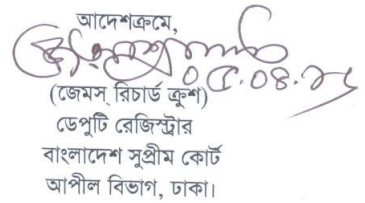 আদেশক্রমে,
(জেমস্ রিচার্ড ক্রুশ)
ডেপুটি রেজিস্ট্রার
বাংলাদেশ সুপ্রীম কোর্ট
আপীল বিভাগ, ঢাকা।